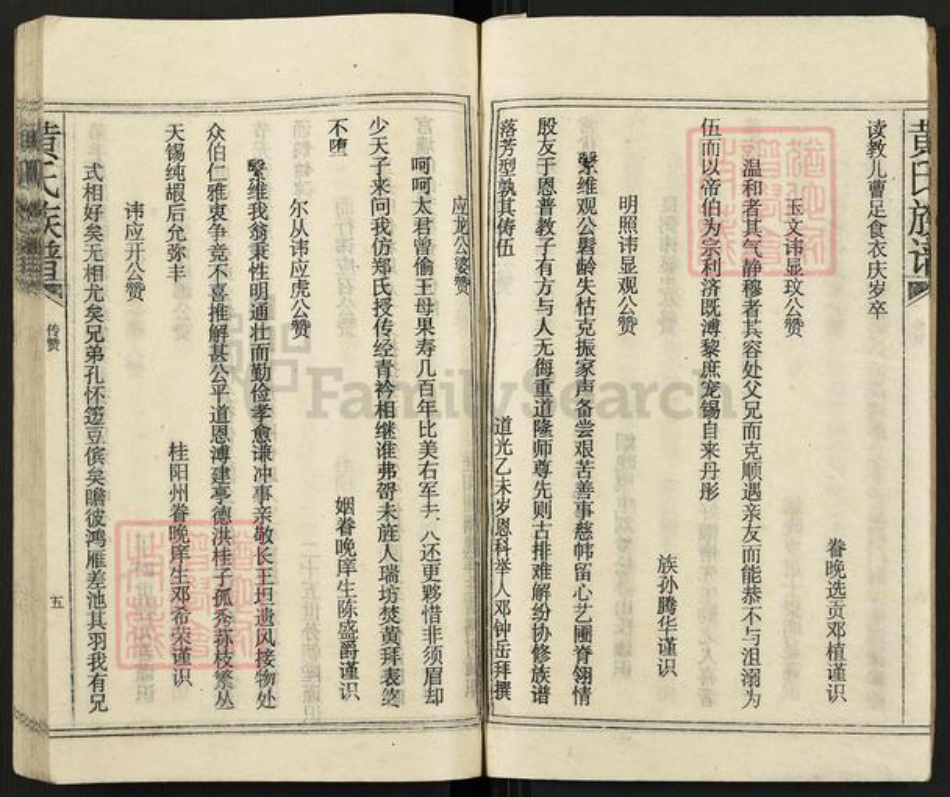 黄氏族谱
读教儿曹足食衣庆岁卒
眷晚选贡邓植谨识
玉文讳显玟公赞
温和者其气静穆者其容处父兄而克顺遇亲友而能恭不与沮溺为
伍而以帝伯为宗利济既溥黎庶宠锡自来丹彤
族孙腾华谨识
明照讳显观公赞
繄维观公髫龄失怙克振家声备尝艰苦善事慈帏留心艺圃脊翎情
殷友于恩普教子有方与人无侮重道隆师尊先则古排难解纷协修族谱
落芳型孰其俦伍
道光乙未岁恩科举人邓钟岳拜撰
应龙公婆赞
呵呵太君曾偷王母果寿几百年比美右军夫八还更夥惜非须眉却
少天子来问我仿郑氏授传经青衿相继谁弗哿未旌人瑞坊焚黄拜表
不堕
姻眷晚庠生陈盛爵谨识
尔从讳应虎公赞
繄维我翁秉性明通壮而勤俭孝愈谦冲事亲敬长王坦遗风接物处
众伯仁雅衷争竞不喜推解甚公平道恩溥建亭德洪桂子孤秀荪枝繁丛
天锡纯嘏后允弥丰
桂阳州眷晚庠生邓希荣谨识
讳应开公赞
式相好矣无相尤矣兄弟孔怀笾豆傧矣瞻彼鸿雁差池其羽我有兄
黄氏族谱
传赞
五
FamilySearch